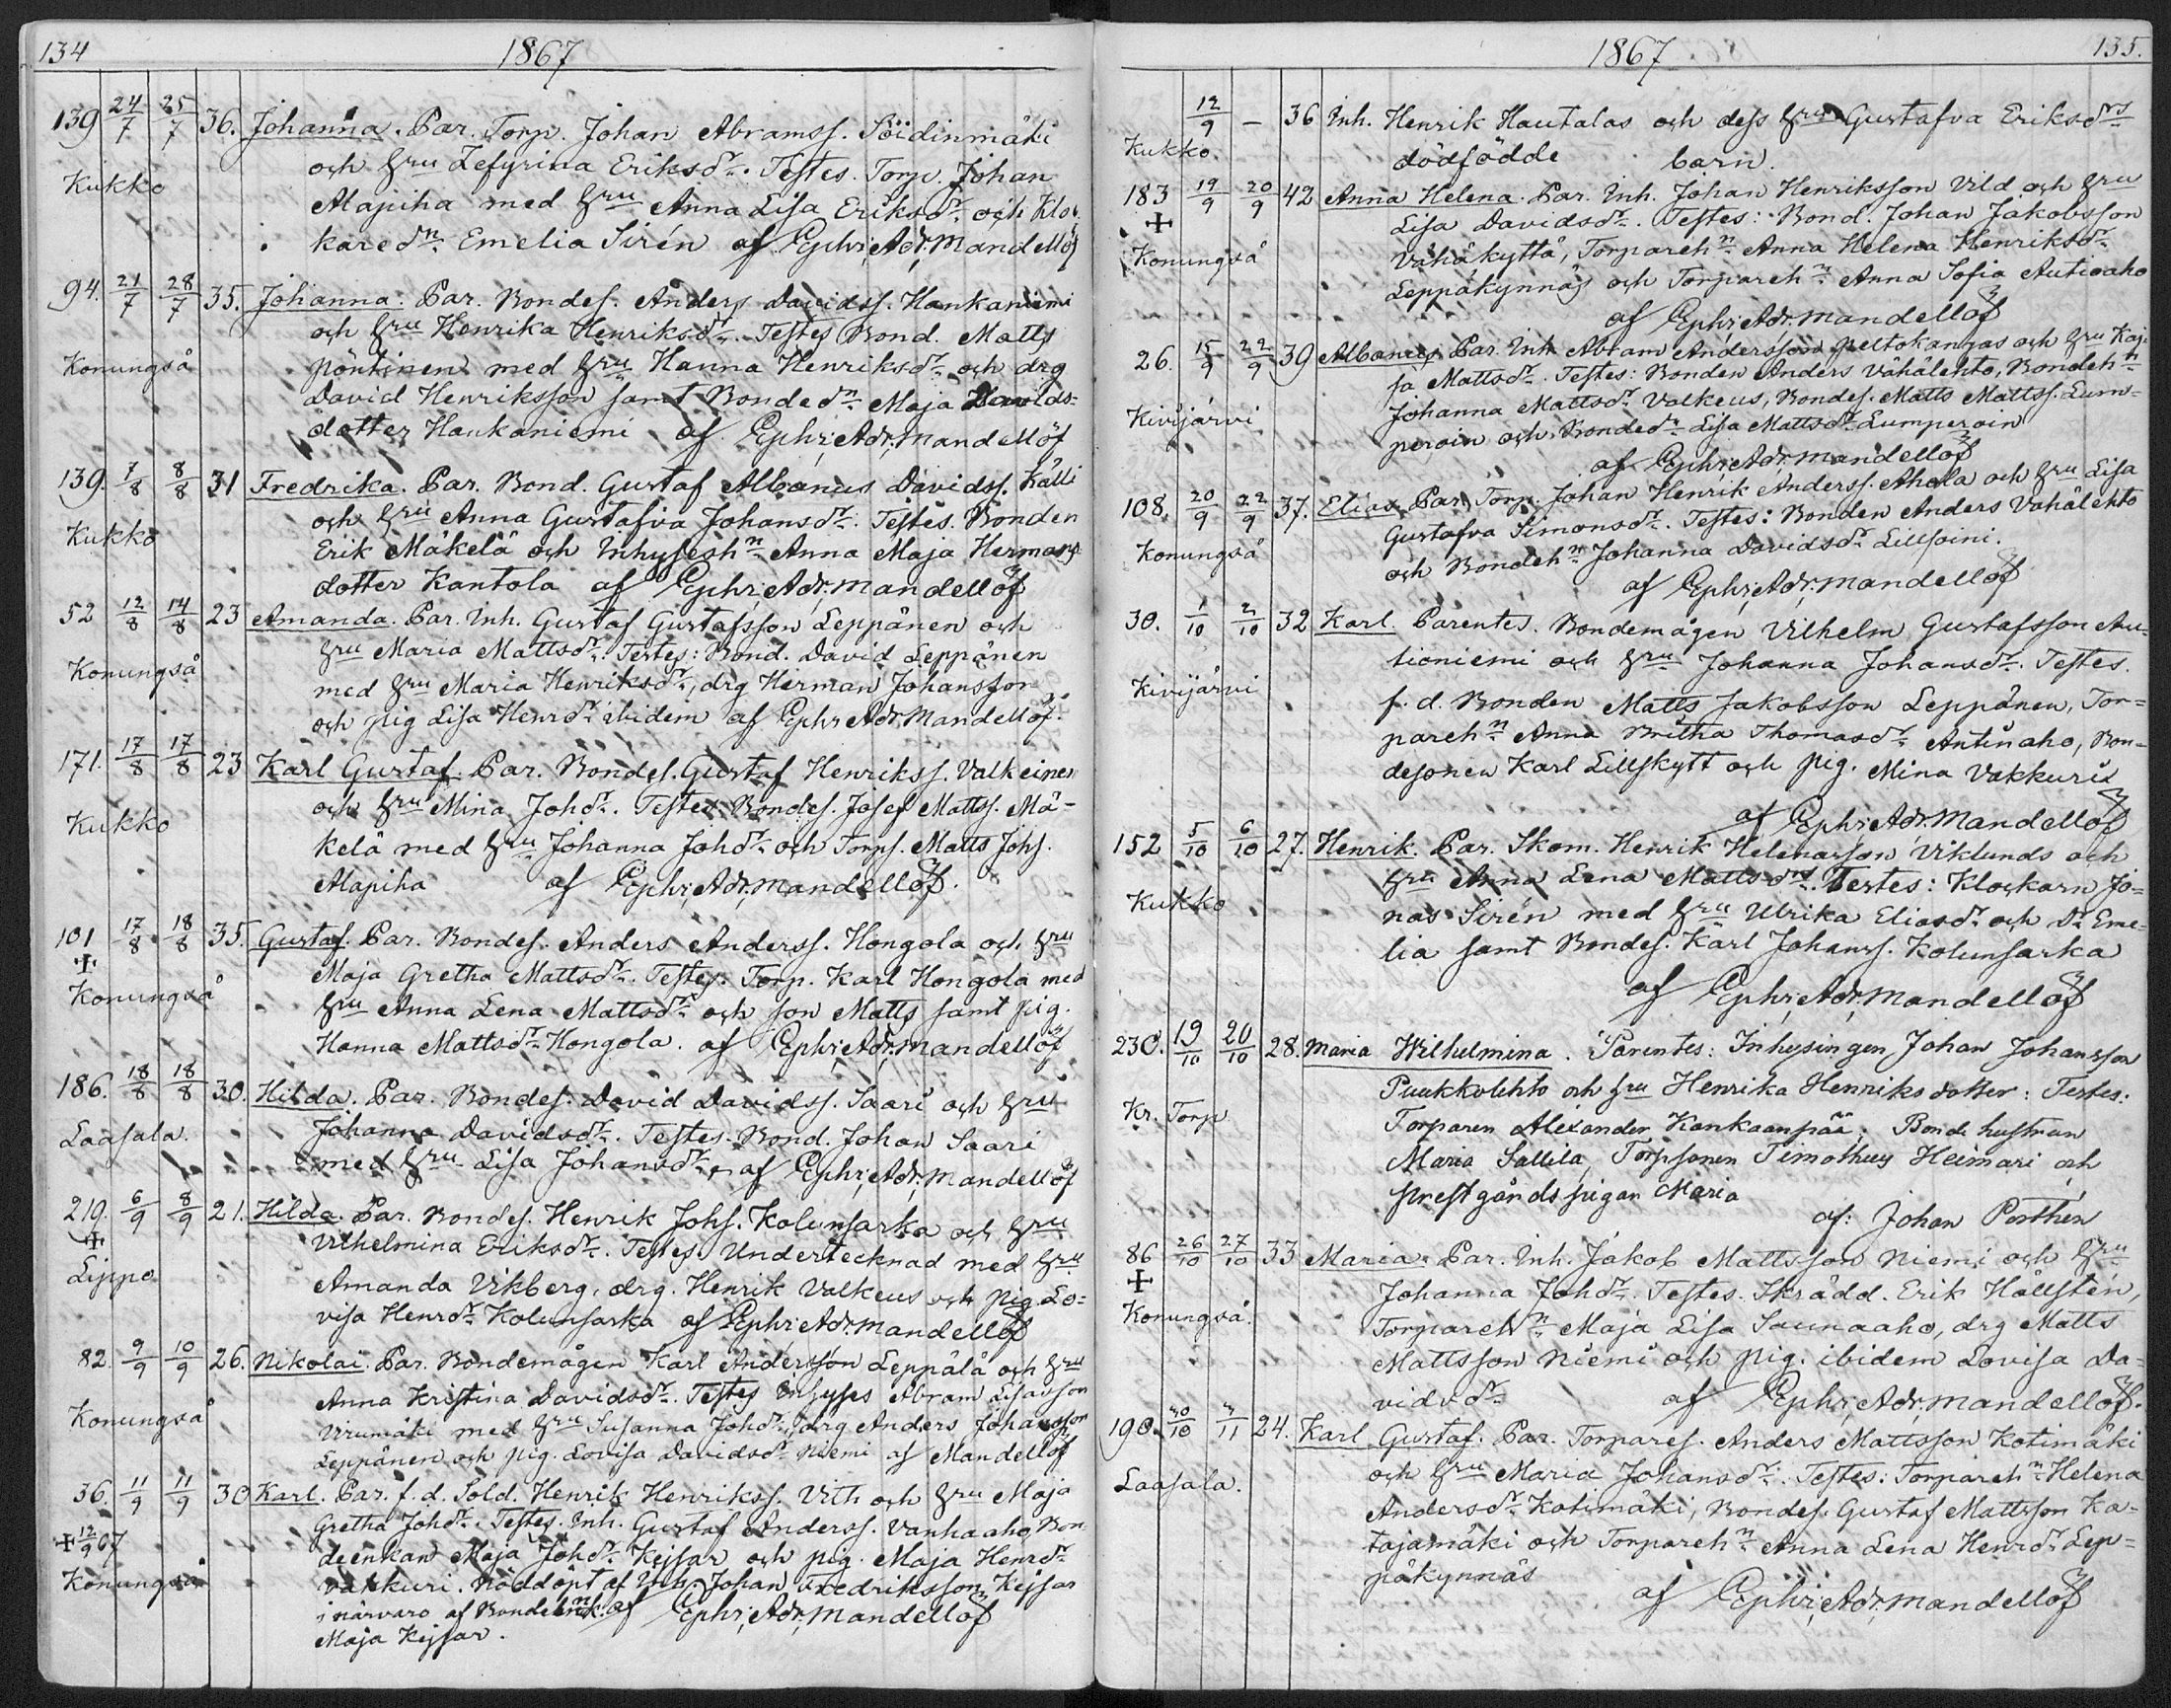 134
1867
139 24/7 25/7 36. Johanna. Par. Torp. Johan Abramss. Söidinmäki
och hru Zefyrina Eriksdr. Testes. Torp. Johan
Kukko
Alapiha med hru Anna Lisa Eriksdr och Kloc
karedn Emelia Sirén af Ephr. Adr. Mandellöf
94. 21/7 28/7 35. Johanna. Par. Bondes. Anders Davidss. Hankaniemi
och hru Henrika Henriksdr. Testes Bond. Matts
Konungså
Pöntinen med hru Hanna Henriksdr och drg
David Henriksson samt Bondedn Maja Davids=
dotter Hankaniemi af Ephr. Adr. Mandellöf
139. 7/8 8/8 31 Fredrika. Par. Bond. Gustaf Albanus Davidss. Källi
och hru Anna Gustafva Johansdr. Testes. Bonden
Kukko
Erik Mäkelä och Inhyseshn Anna Maja Hermans
dotter Kantola af Ephr. Adr. Mandellöf
52 12/8 14/8 23 Amanda. Par. Inh. Gustaf Gustafsson Leppänen och
hru Maria Mattsdr. Testes: Bond. David Leppänen
Konungså
med hru Maria Henriksdr, drg Herman Johansson
och pig Lisa Henrdr ibidem af Ephr Adr. Mandellöf.
171. 17/8 17/8 23 Karl Gustaf. Par. Bondes. Gustaf Henrikss. Valkeinen
och hru Mina Johdr. Testes Bondes. Josef Mattss. Mä-
Kukko
kelä med hru Johanna Johdr och Torps. Matts Johs.
Alapiha af Ephr. Adr. Mandellöf.
101 17/8 18/8 35. Gustaf. Par. Bondes. Anders Anderss. Hongola och hru
+
Maja Gretha Mattsdr. Testes. Torp. Karl Hongola med
Konungså
hru Anna Lena Mattsdr och son Matts samt pig.
Hanna Mattsdr Hongola. af Ephr. Adr. Mandellöf
186. 18/8 18/8 30. Hilda. Par. Bondes. David Davidss. Saari och hru
Laasala.
Johanna Davidsdr. Testes. Bond. Johan Saari
med hru Lisa Johansdr. af Ephr. Adr. Mandellöf
219. 6/9 8/9 21. Hilda. Par. Bondes. Henrik Johs. Kolunsarka och hru
+
Vilhelmina Eriksdr. Testes. Undertecknad med hru
Lippo
Amanda Vikberg, drg. Henrik Valkeus och pig Lo=
visa Henrdr Kolunsarka af Ephr. Adr. Mandellöf
82. 9/9 10/9 26. Nikolai. Par. Bondemågen Karl Andersson Leppälä och hru
Anna Kristina Davidsdr. Testes Inhyses Abram Lisasson
Konungså
Virumäki med hru Susanna Johdr, drg Anders Johansson
Leppänen och pig. Lovisa Davidsdr Niemi af Mandellöf
36. 11/9 11/9 30 Karl. Par. f.d. Sold. Henrik Henrikss. Vith och hru Maja
Gretha Johdr. Testes. Inh. Gustaf Anderss. Vanhaaho, Bon
+ 12/9 67
deenkan Maja Johdr Kejsar och pig. Maja Henrdr
Konungså
Vakkuri. Nöddöpt af Inh. Johan Fredriksson Kejsar
i närvaro af Bondeenk. af Ephr. Adr. Mandellöf
Maja Kejsar.
1867
135.
12/9 – 36 Inh. Henrik Hautalas och dess hru Gustafva Eriksdrs
Kukko.
dödfödde barn.
183 19/9 20/9 42 Anna Helena. Par. Inh. Johan Henriksson Vild och hru
+
Lisa Davidsdr. Testes: Bond. Johan Jakobsson
Konungså
Vähäkyttä, Torparehn Anna Helena Henriksdr
Leppäkynnäs och Torparehn Anna Sofia Autioaho
af Ephr. Adr. Mandellöf
26. 15/9 22/9 39 Albanus. Par. Inh Abram Andersson Peltokangas och hru Kaj
sa Mattsdr. Testes: Bonden Anders Vähälehto, Bondehn
Kivijärvi
Johanna Mattsdr Valkeus, Bondes. Matts Mattss. Lum=
peroin och Bondedr Lisa Mattsdr Lumperoin
af Ephr. Adr. Mandellöf
108. 20/9 22/9 37. Elias. Par. Torp. Johan Henrik Anderss. Ahola och hru Lisa
Gustafva Simonsdr. Testes: Bonden Anders Vähälehto
Konungså
och Bondehn Johanna Davidsdr Lillsoini.
af Ephr. Adr. Mandellöf
30. 1/10 2/10 32 Karl. Parentes. Bondemågen Vilhelm Gustafsson Au-
tioniemi och hru Johanna Johansdr. Testes.
Kivijärvi
f.d. Bonden Matts Jakobsson Leppänen, Tor=
parehn Anna Britha Thomasdr Antinaho, Bon=
desonen Karl Lillskytt och pig. Mina Vakkuris
af Ephr. Adr. Mandellöf
152 5/10 6/10 27. Henrik. Par. Skom. Henrik Helenasson Viklunds och
hru Anna Lena Mattsdrs. Testes: Klockarn Jo=
Kukko
nas Sirén med hru Ulrika Eliasdr och Dr Eme=
lia samt Bondes. Karl Johanss. Kolunsarka
af Ephr. Adr. Mandellöf
230. 19/10 20/10 28. Maria Wilhelmina. Parentes: Inhysingen Johan Johansson
Puukkolehto och hru Henrika Henriksdotter: Testes:
Kr. Torp
Torparen Alexander Kankaanpää, Bondehustrun
Maria Sallila, Torpsonen Timotheus Heimari och
prestgårdspigan Maria
af: Johan Porthén
86 26/10 27/10 33 Maria. Par. Inh. Jakob Mattsson Niemi och hru
+
Johanna Johdr. Testes. Skrädd. Erik Hällstén,
Konungså.
Torparehn Maja Lisa Saunaaho, drg Matts
Mattsson Niemi och pig. ibidem Lovisa Da=
vidsdr af Ephr. Adr. Mandellöf.
190. 30/10 3/11 24. Karl Gustaf. Par. Torpares. Anders Mattsson Kotimäki
och hru Maria Johansdr. Testes: Torparehn Helena
Laasala.
Andersdr Kotimäki, Bondes. Gustaf Mattsson Ka=
tajamäki och Torparehn Anna Lena Henrdr Lep=
päkynnäs
af Ephr. Adr. Mandellöf